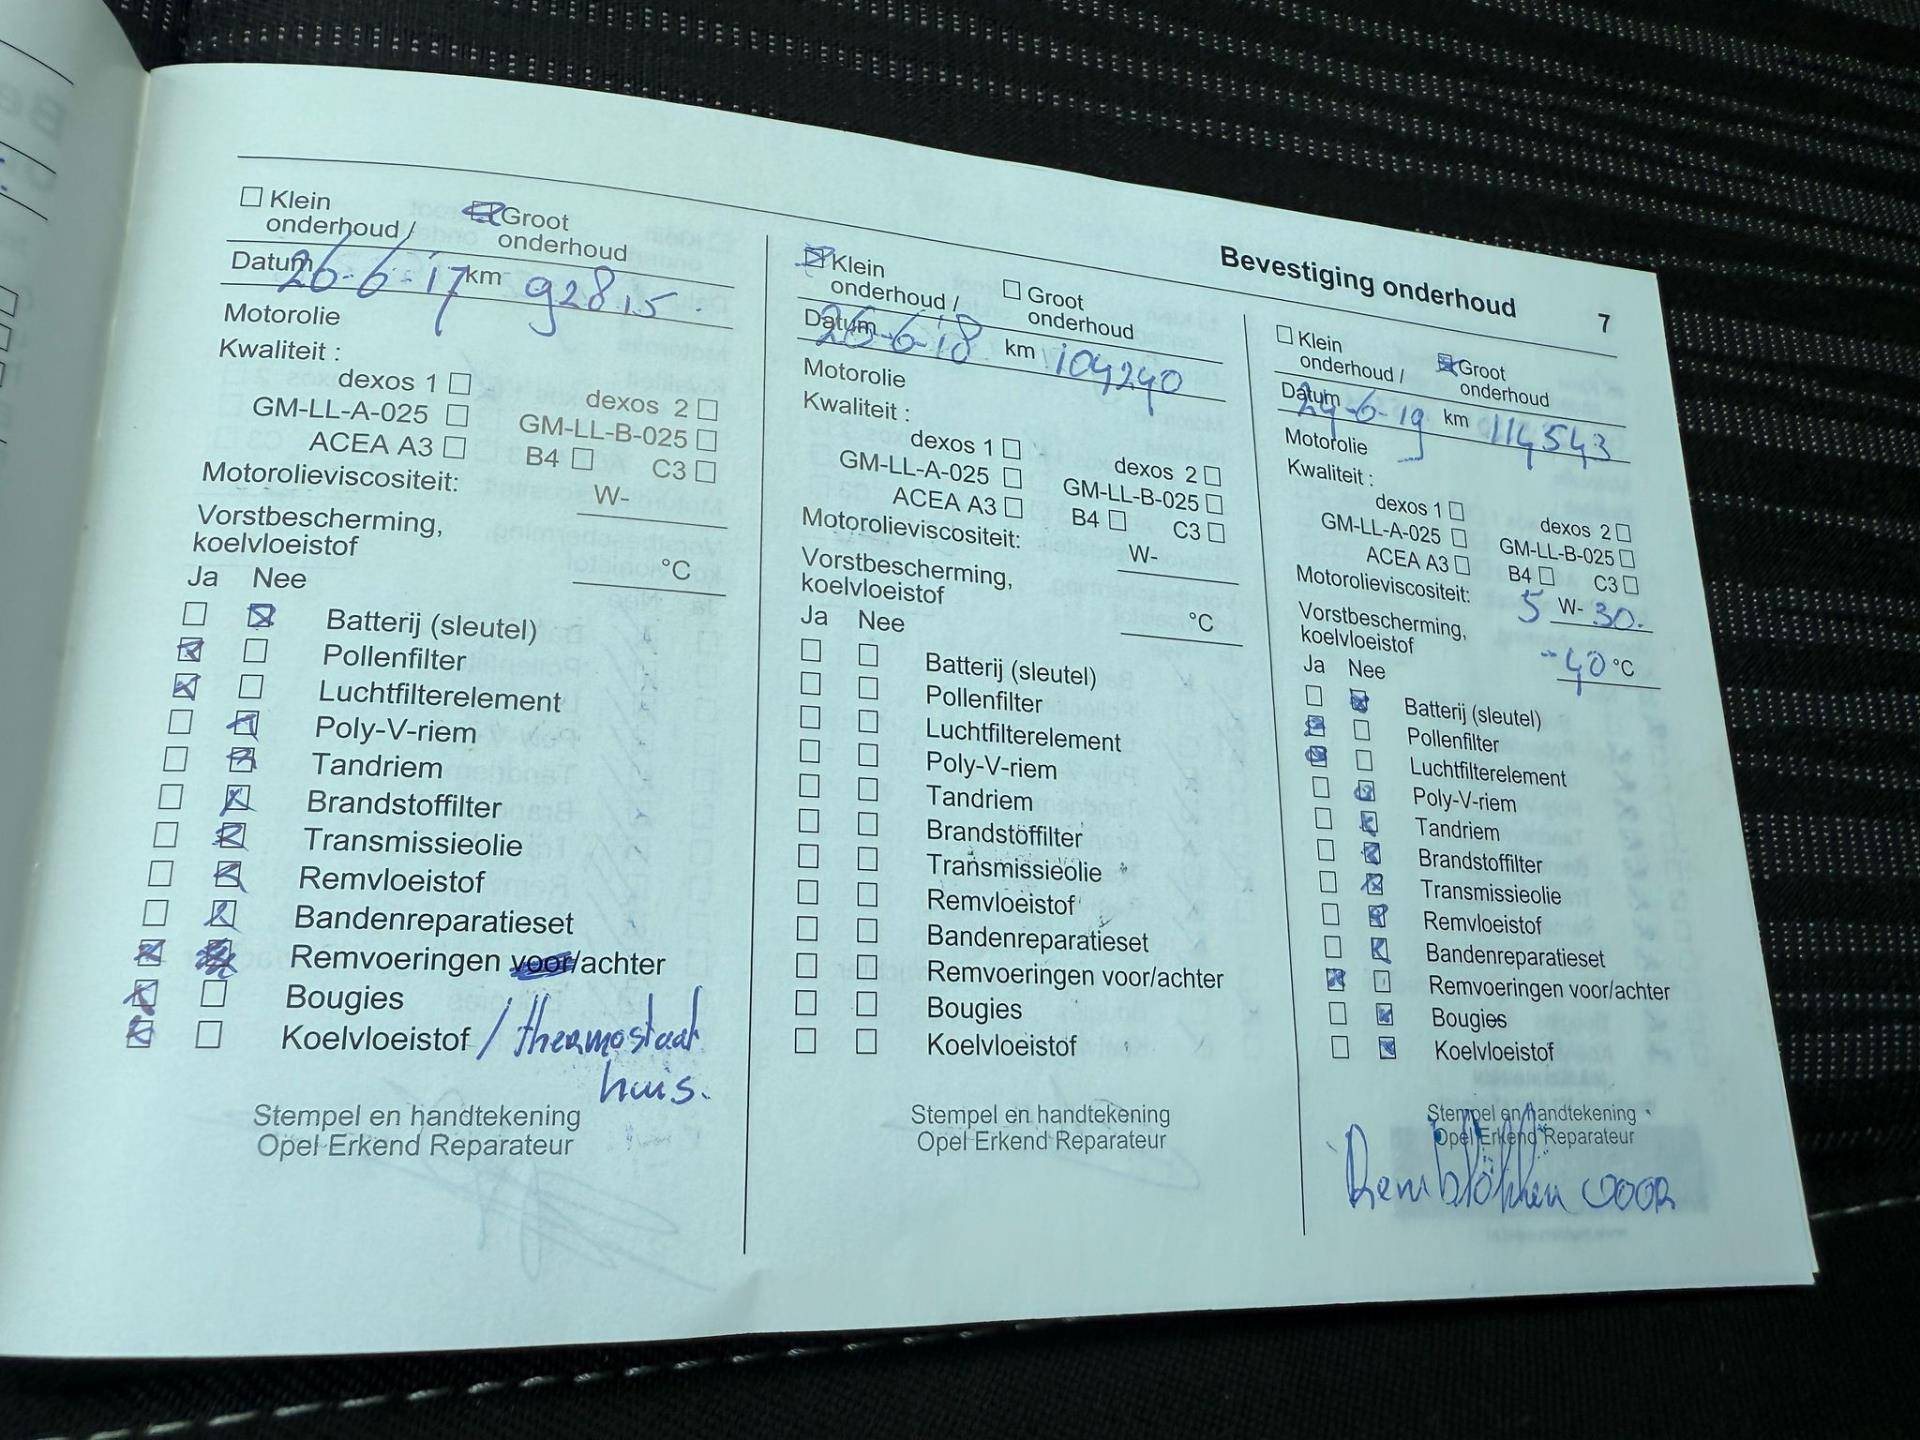 Bevestiging onderhoud 7
Klein
onderhoud /
Groot
onderhoud
Datum 26-6-17 km 92815.
Motorolie
Kwaliteit :
dexos 1 dexos 2
GM-LL-A-025 GM-LL-B-025
ACEA A3 B4 C3
Motorolieviscositeit: W-
Vorstbescherming,
koelvloeistof °C
Ja Nee
Batterij (sleutel)
Pollenfilter
Luchtfilterelement
Poly-V-riem
Tandriem
Brandstoffilter
Transmissieolie
Remvloeistof
Bandenreparatieset
Remvoeringen voor/achter
Bougies
Koelvloeistof / thermostaat
huis.
Stempel en handtekening
Opel Erkend Reparateur
Klein
onderhoud /
Groot
onderhoud
Datum 26-6-18 km 104240
Motorolie
Kwaliteit :
dexos 1 dexos 2
GM-LL-A-025 GM-LL-B-025
ACEA A3 B4 C3
Motorolieviscositeit: W-
Vorstbescherming,
koelvloeistof °C
Ja Nee
Batterij (sleutel)
Pollenfilter
Luchtfilterelement
Poly-V-riem
Tandriem
Brandstoffilter
Transmissieolie
Remvloeistof
Bandenreparatieset
Remvoeringen voor/achter
Bougies
Koelvloeistof
Stempel en handtekening
Opel Erkend Reparateur
Klein
onderhoud /
Groot
onderhoud
Datum 24-6-19 km 114543
Motorolie
Kwaliteit :
dexos 1 dexos 2
GM-LL-A-025 GM-LL-B-025
ACEA A3 B4 C3
Motorolieviscositeit: 5 W- 30.
Vorstbescherming,
koelvloeistof -40 °C
Ja Nee
Batterij (sleutel)
Pollenfilter
Luchtfilterelement
Poly-V-riem
Tandriem
Brandstoffilter
Transmissieolie
Remvloeistof
Bandenreparatieset
Remvoeringen voor/achter
Bougies
Koelvloeistof
Stempel en handtekening
Opel Erkend Reparateur
Remblokken voor